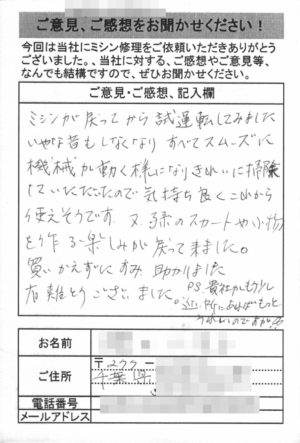 ご意見、ご感想をお聞かせください！
今回は当社にミシン修理をご依頼いただきありがとう
ございました。、当社に対する、ご感想やご意見等、
なんでも結構ですので、ぜひお聞かせください。
ご意見・ご感想、記入欄
ミシンが戻ってから試運転してみました
いやな音もしなくなり すべてスムーズに
機械が動く様になりきれいに掃除
していただいたので気持ち良くこれから
使えそうです 又、孫のスカートや小物
を作る楽しみが戻って来ました。
買いかえずにすみ 助かりました
有難とうございました。
P.S. 貴社がもう少し
近い所にあればもっと
うれしいのですが
お名前
ご住所
〒277-
千葉県
電話番号
メールアドレス